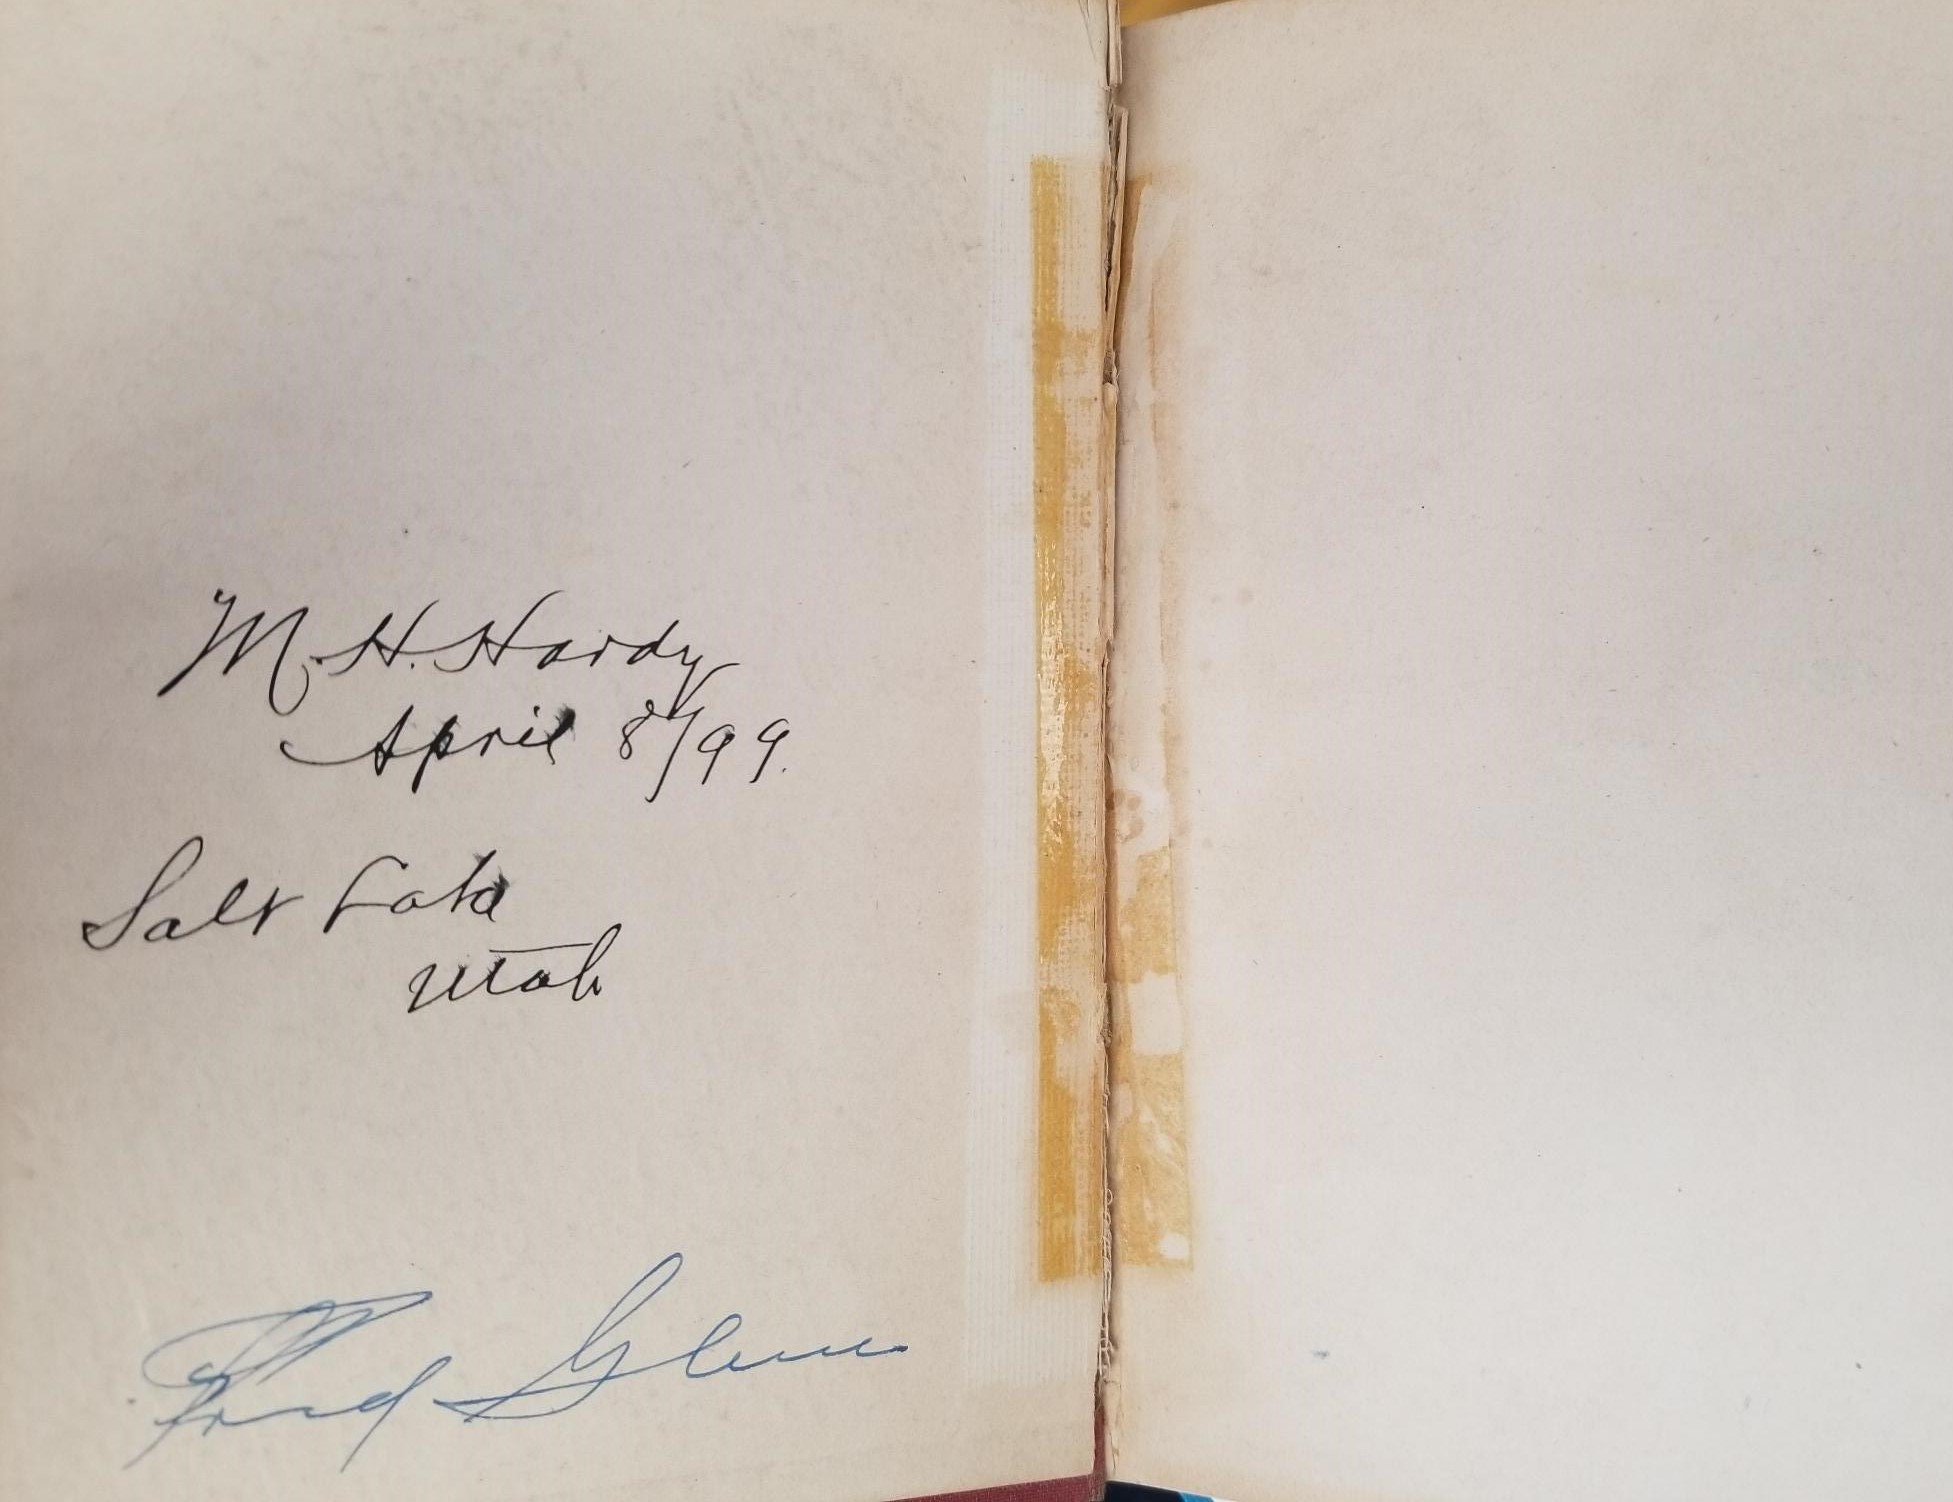 M. H. Hardy
April 8/99.
Salt Lake
Utah
Fred Glenn